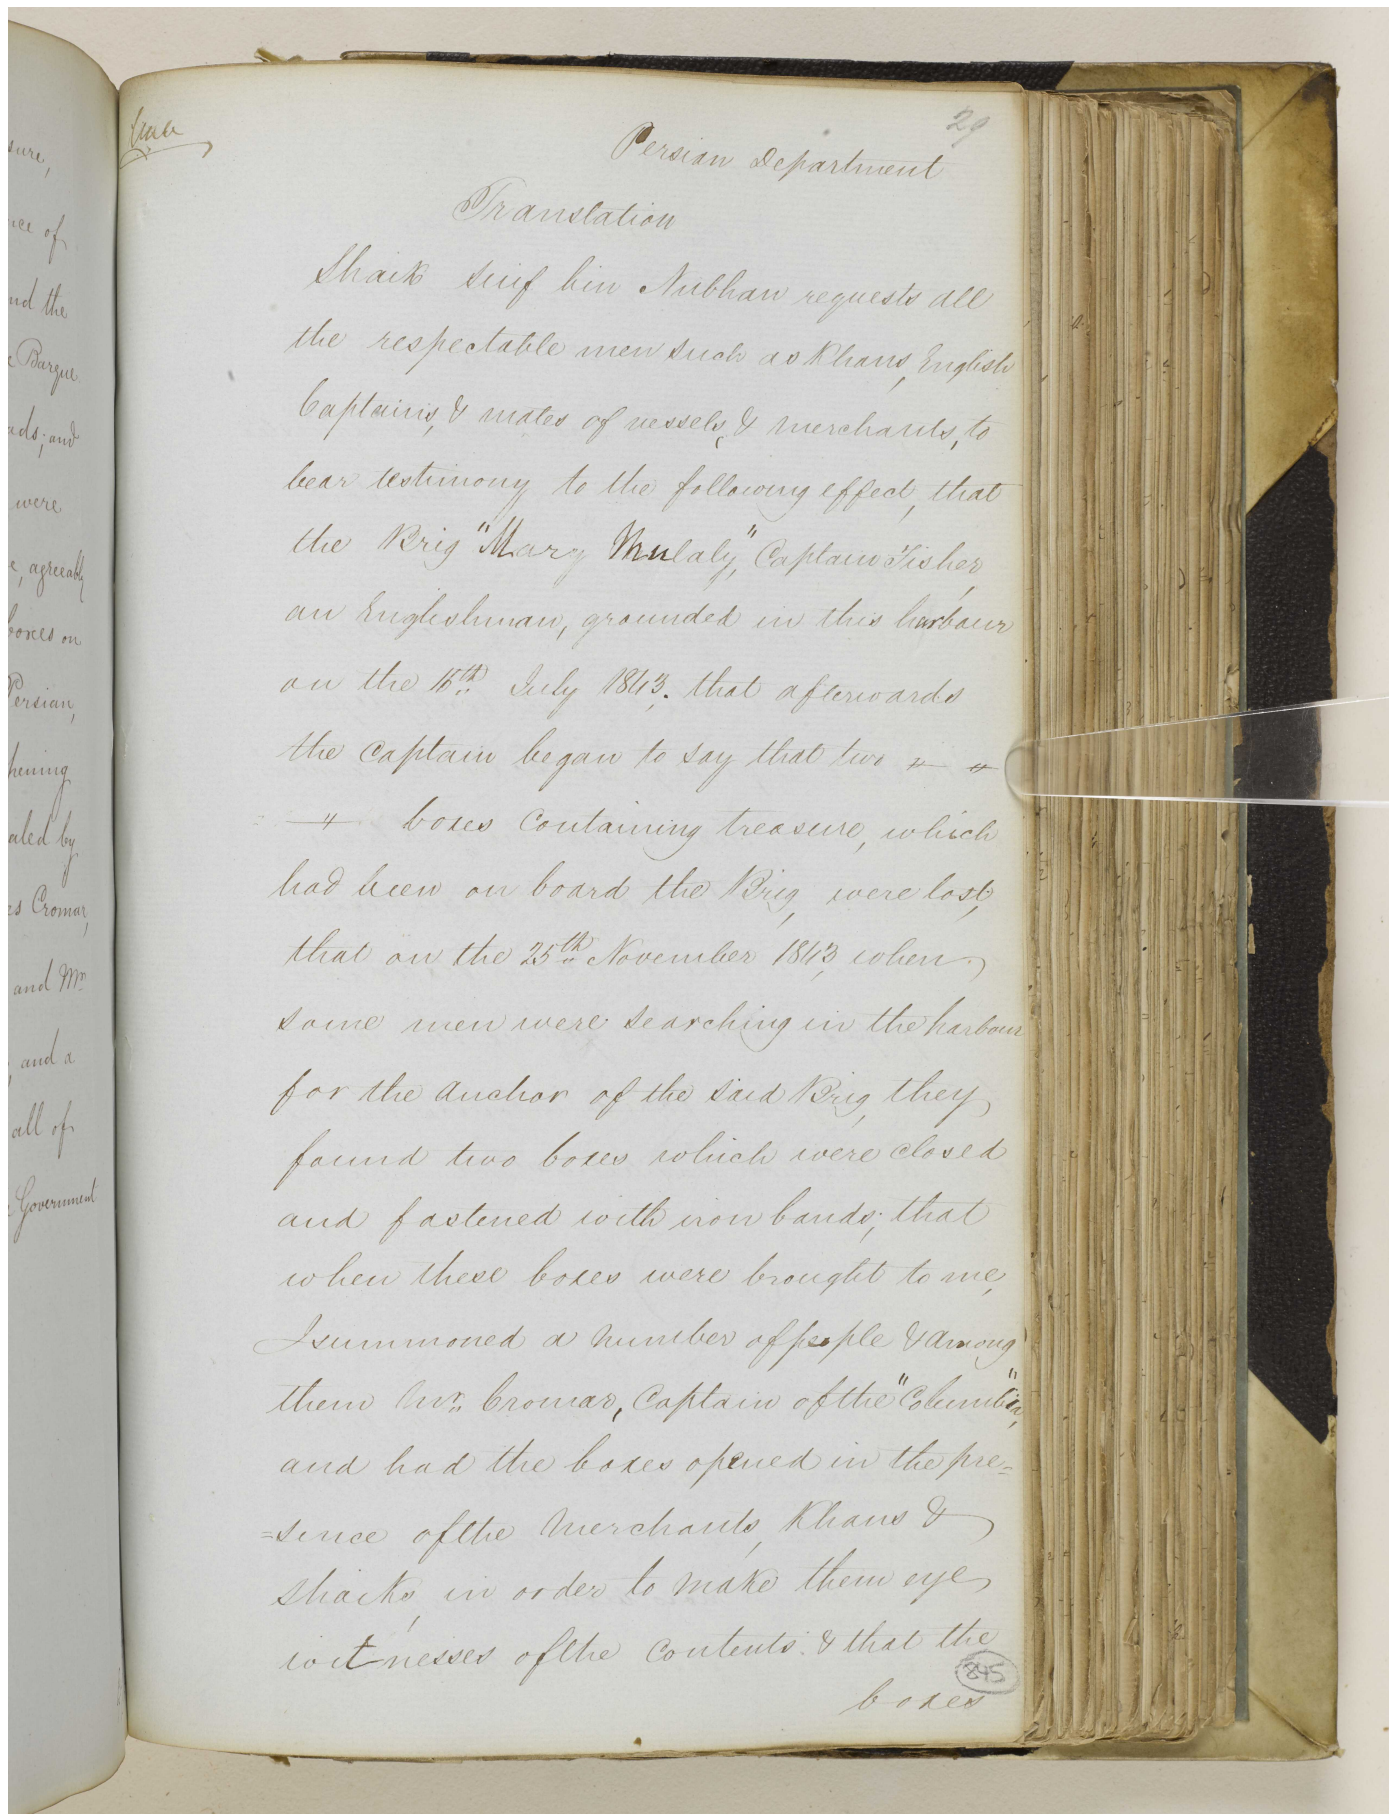 sure,
nce of
nd the
e Barque
ads; and
were
e, agreeably
boxes on
Persian,
hening
aled by
es Cromar,
and Mr.
, and a
all of
e Government
29
Persian Department
Translation
Shaik Suif bin Nubhan requests all
the respectable men such as Khans, English
Captains, & mates of vessels, & merchants, to
bear testimony to the following effect, that
the Brig "Mary Mulaly," Captain Fisher,
an Englishman, grounded in this harbour
on the 15th July 1843, that afterwards
the Captain began to say that two " "
" boxes containing treasure, which
had been on board the Brig, were lost,
that on the 25th November 1843, when
some men were searching in the harbour
for the Anchor of the said Brig, they
found two boxes which were closed
and fastened with iron bands; that
when these boxes were brought to me,
I summoned a number of people & among
them Mr. Cromar, Captain of the "Columbia",
and had the boxes opened in the pre=
=sence of the Merchants, Khans &
Shaiks, in order to make them eye
witnesses of the contents. & that the
845
boxes